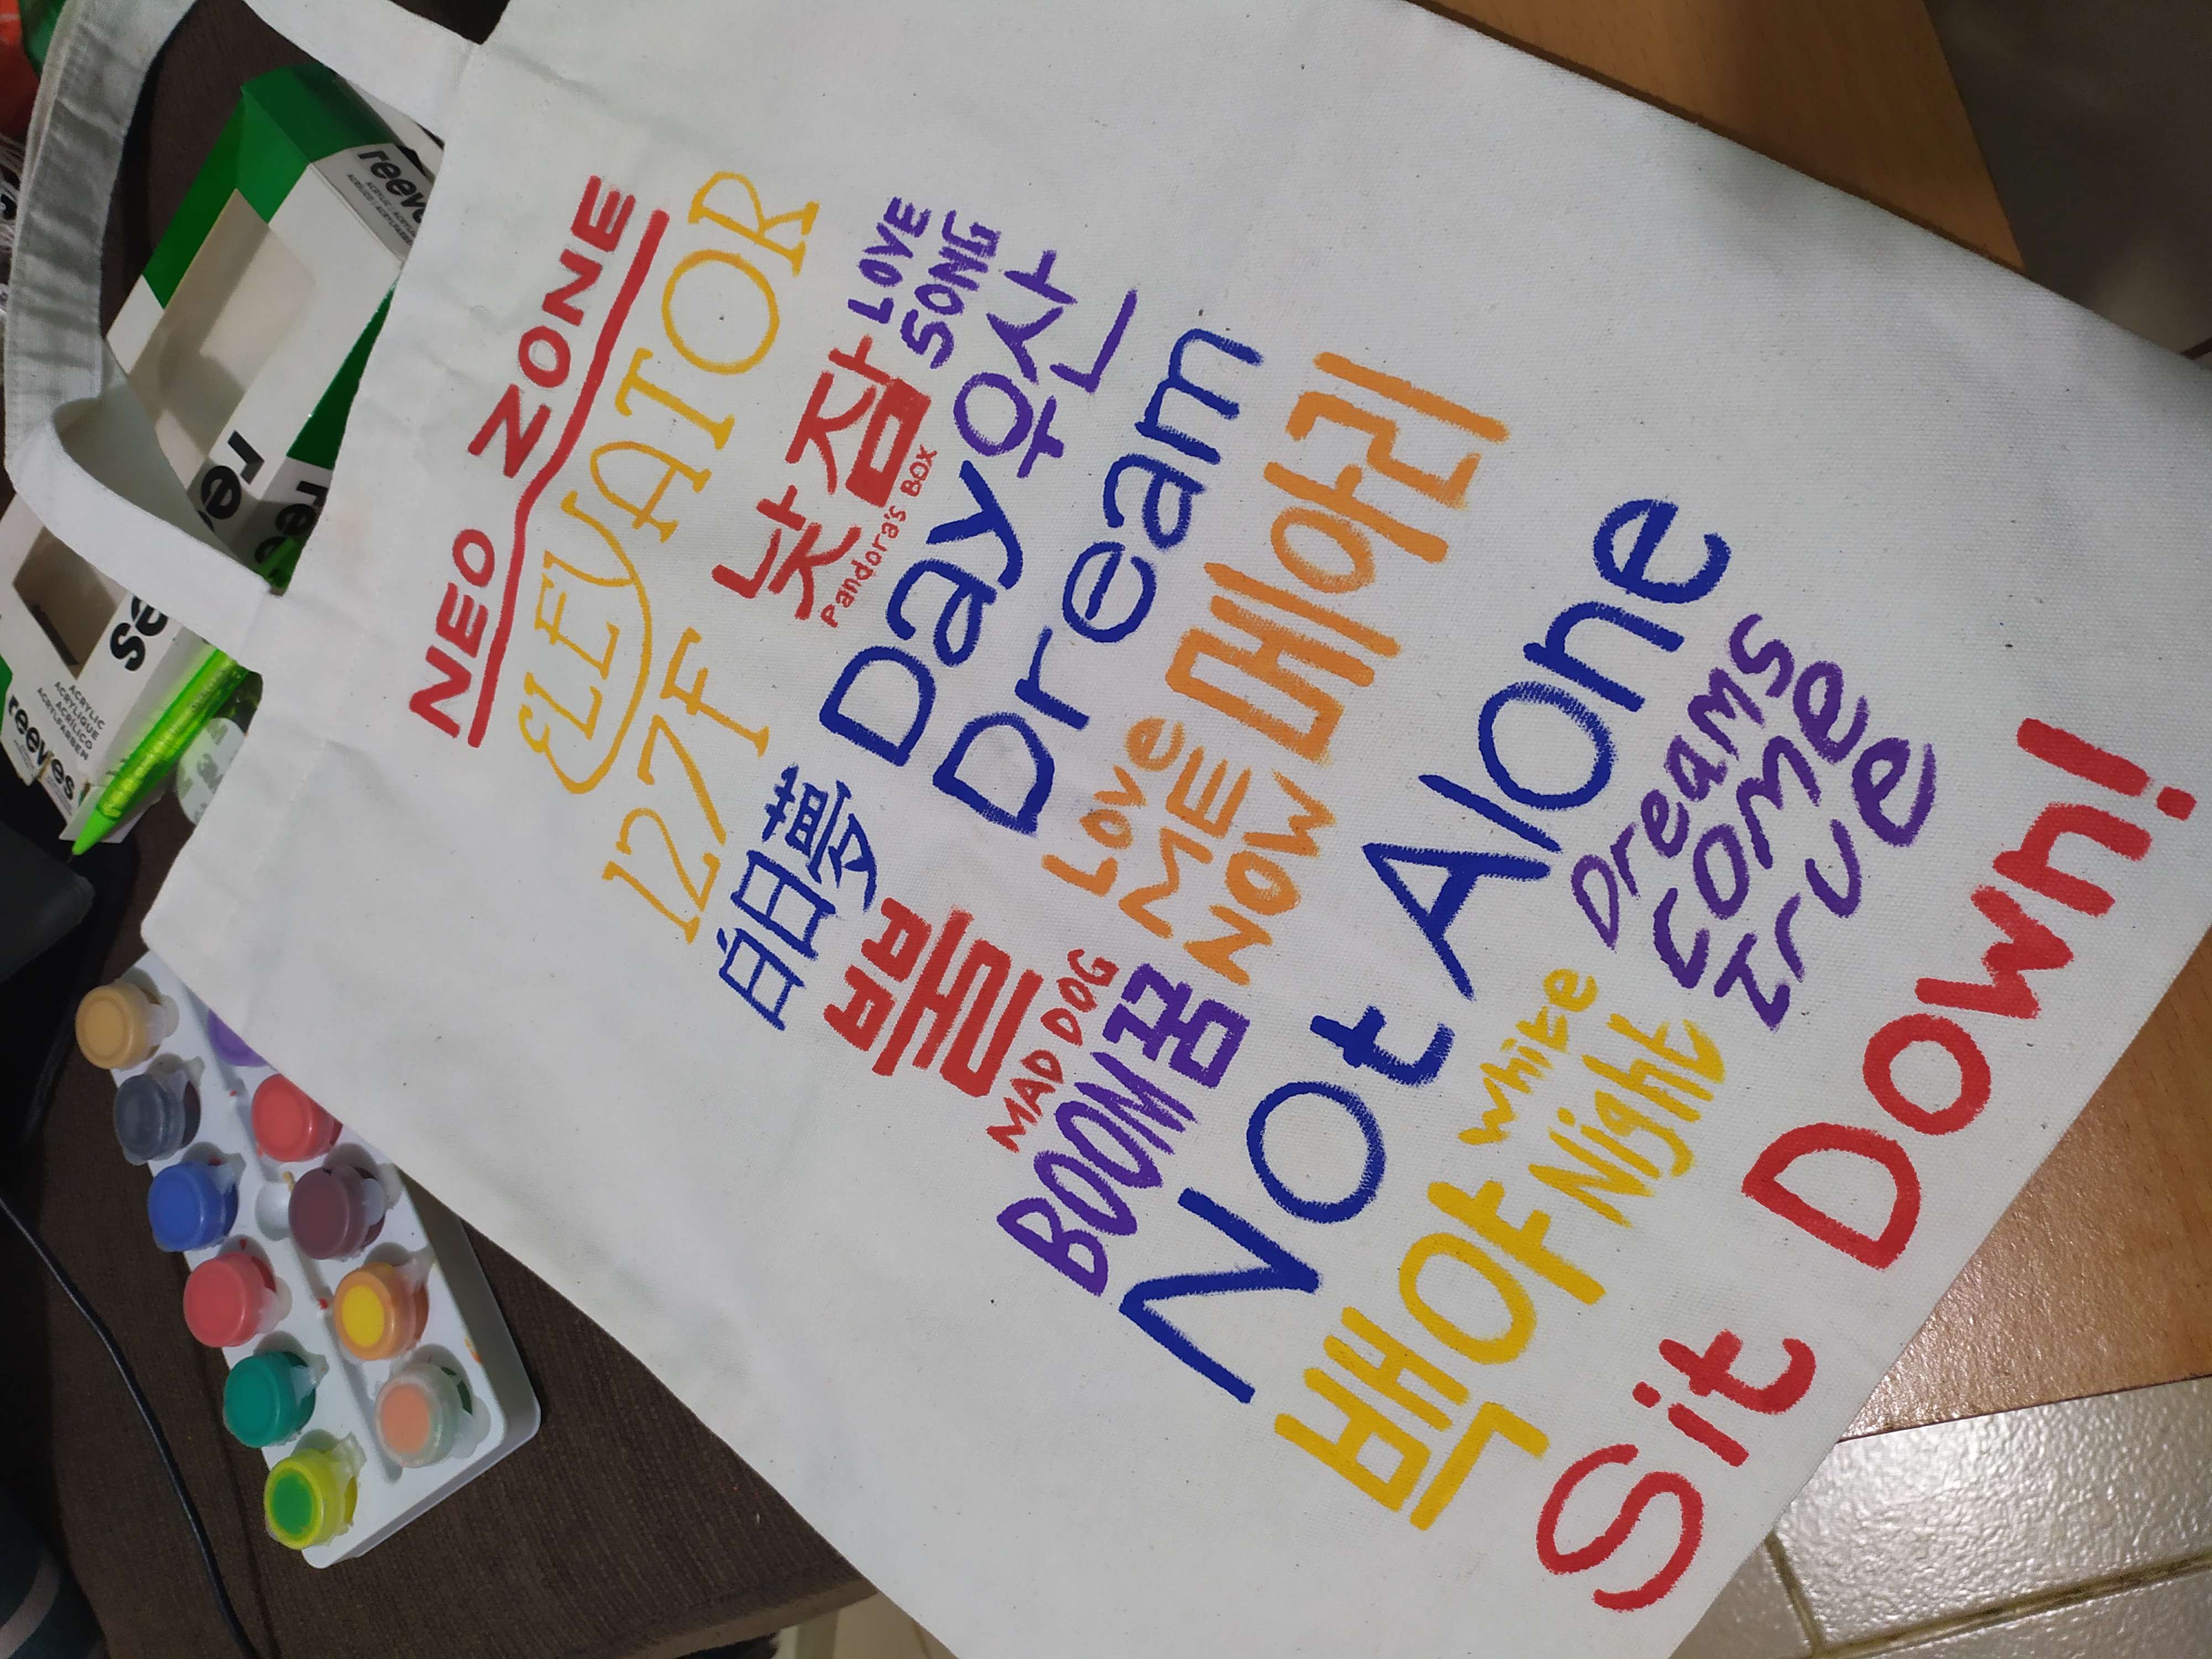 NEO ZONE
ELEVATOR
127F
낮잠
Pandora's BOX
LOVE
SONG
우산
白日夢
Day
Dream
뿔
MAD DOG
Love
ME
NOW
메아리
BOOM
꿈
Not Alone
백야
White
Night
Dreams
come
True
Sit Down!
reeves
ACRYLIC
ACRYLIQUE
ACRÍLICO
ACRYLFARBEN
reeves